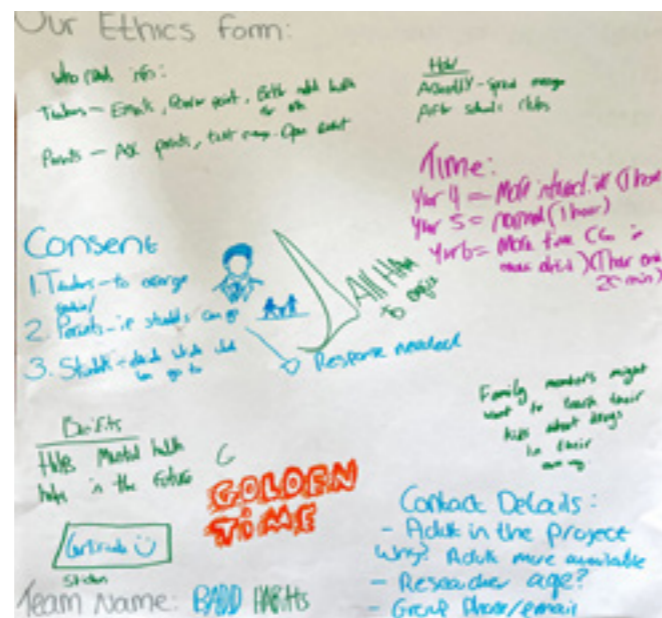 Our Ethics form:
who read info:
Teachers – Emails, Power point, Extra adult health
Parents – Ask parents, text, Open event
How
Assembly – spread message
After schools clubs
Time:
Year 4 = More interactive (1 hour)
Year 5 = normal (1 hour)
Year 6 = More time (Go in
more detail) (1 hour and
20 min)
Consent
1. Teachers – to arrange
2. Parents – if students can go
3. Students – decide which club
can go to
All Have
To agree
Response needed
Family members might
want to teach their
kids about drugs
in their
own way.
Benifits
Helps Mental health
helps in the future
GOLDEN
TIME
Certificate
Sticker
Contact Details:
- Adult in the project
Why? Adult more available
- Researcher age?
- Group Phone/email
Team Name: BADD HABITS